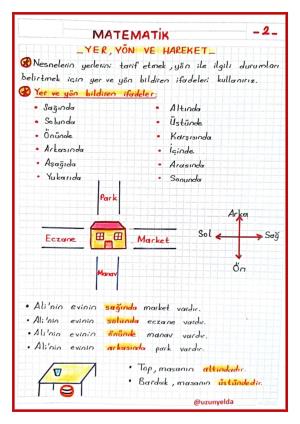 MATEMATİK
-2-
YER, YÖN VE HAREKET
Nesnelerin yerlerini tarif etmek, yön ile ilgili durumları
belirtmek için yer ve yön bildiren ifadeleri kullanırız.
Yer ve yön bildiren ifadeler;
• Sağında
• Solunda
• Önünde
• Arkasında
• Aşağıda
• Yukarıda
• Altında
• Üstünde
• Karşısında
• İçinde
• Arasında
• Sonunda
Park
Eczane
Market
Manav
Arka
Sol
Sağ
Ön
• Ali'nin evinin sağında market vardır.
• Ali'nin evinin solunda eczane vardır.
• Ali'nin evinin önünde manav vardır.
• Ali'nin evinin arkasında park vardır.
• Top, masanın altındadır.
• Bardak, masanın üstündedir.
@uzunyelda